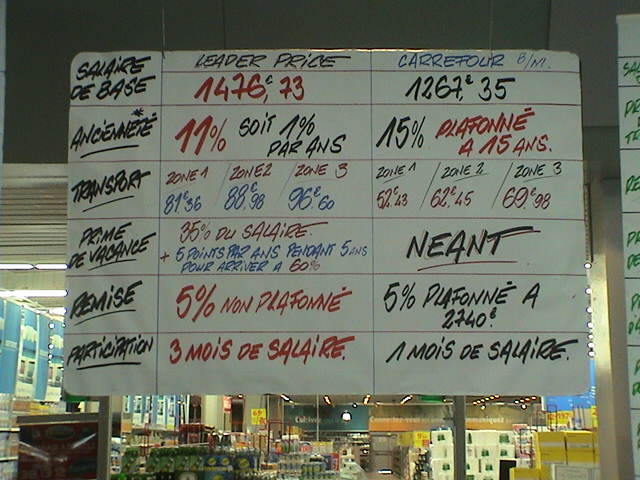 LEADER PRICE CARREFOUR B/M.
SALAIRE DE BASE 1476,€ 73 1267,€ 35
ANCIENNETÉ* 11% SOIT 1% PAR ANS 15% PLAFONNÉ A 15 ANS.
TRANSPORT ZONE 1 / ZONE 2 / ZONE 3 ZONE 1 / ZONE 2 / ZONE 3
81€36 88€98 96€60 52€43 62€45 69€98
PRIME DE VACANCE 35% DU SALAIRE. NEANT
+ 5 POINTS PAR ANS PENDANT 5 ANS
POUR ARRIVER A 60%
REMISE 5% NON PLAFONNÉ 5% PLAFONNÉ A
2740€
PARTICIPATION 3 MOIS DE SALAIRE. 1 MOIS DE SALAIRE.